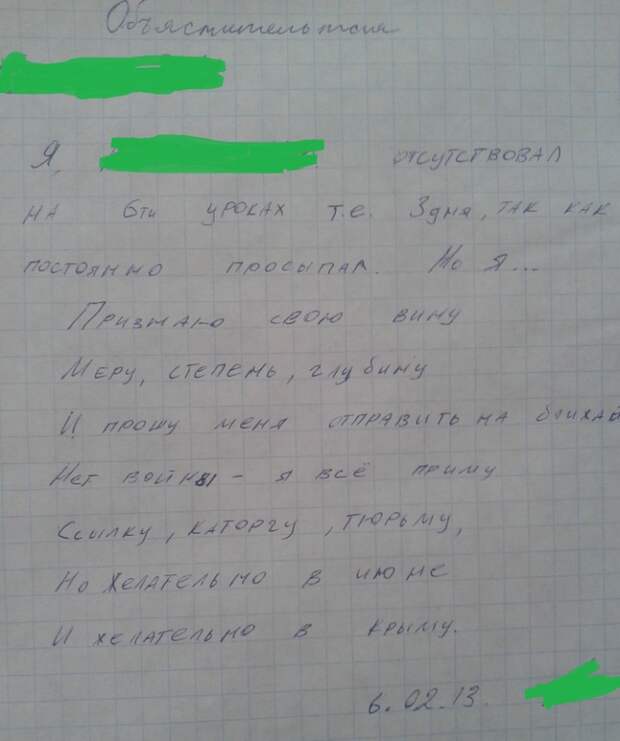 Объяснительная
Я, отсутствовал
на 6ти уроках т.е. 3 дня, так как
постоянно просыпал. Но я...
Признаю свою вину
Меру, степень, глубину
И прошу меня отправить на ближай
Нет войны – я всё приму
Ссылку, каторгу, тюрьму,
Но желательно в июне
И желательно в Крыму.
6.02.13.